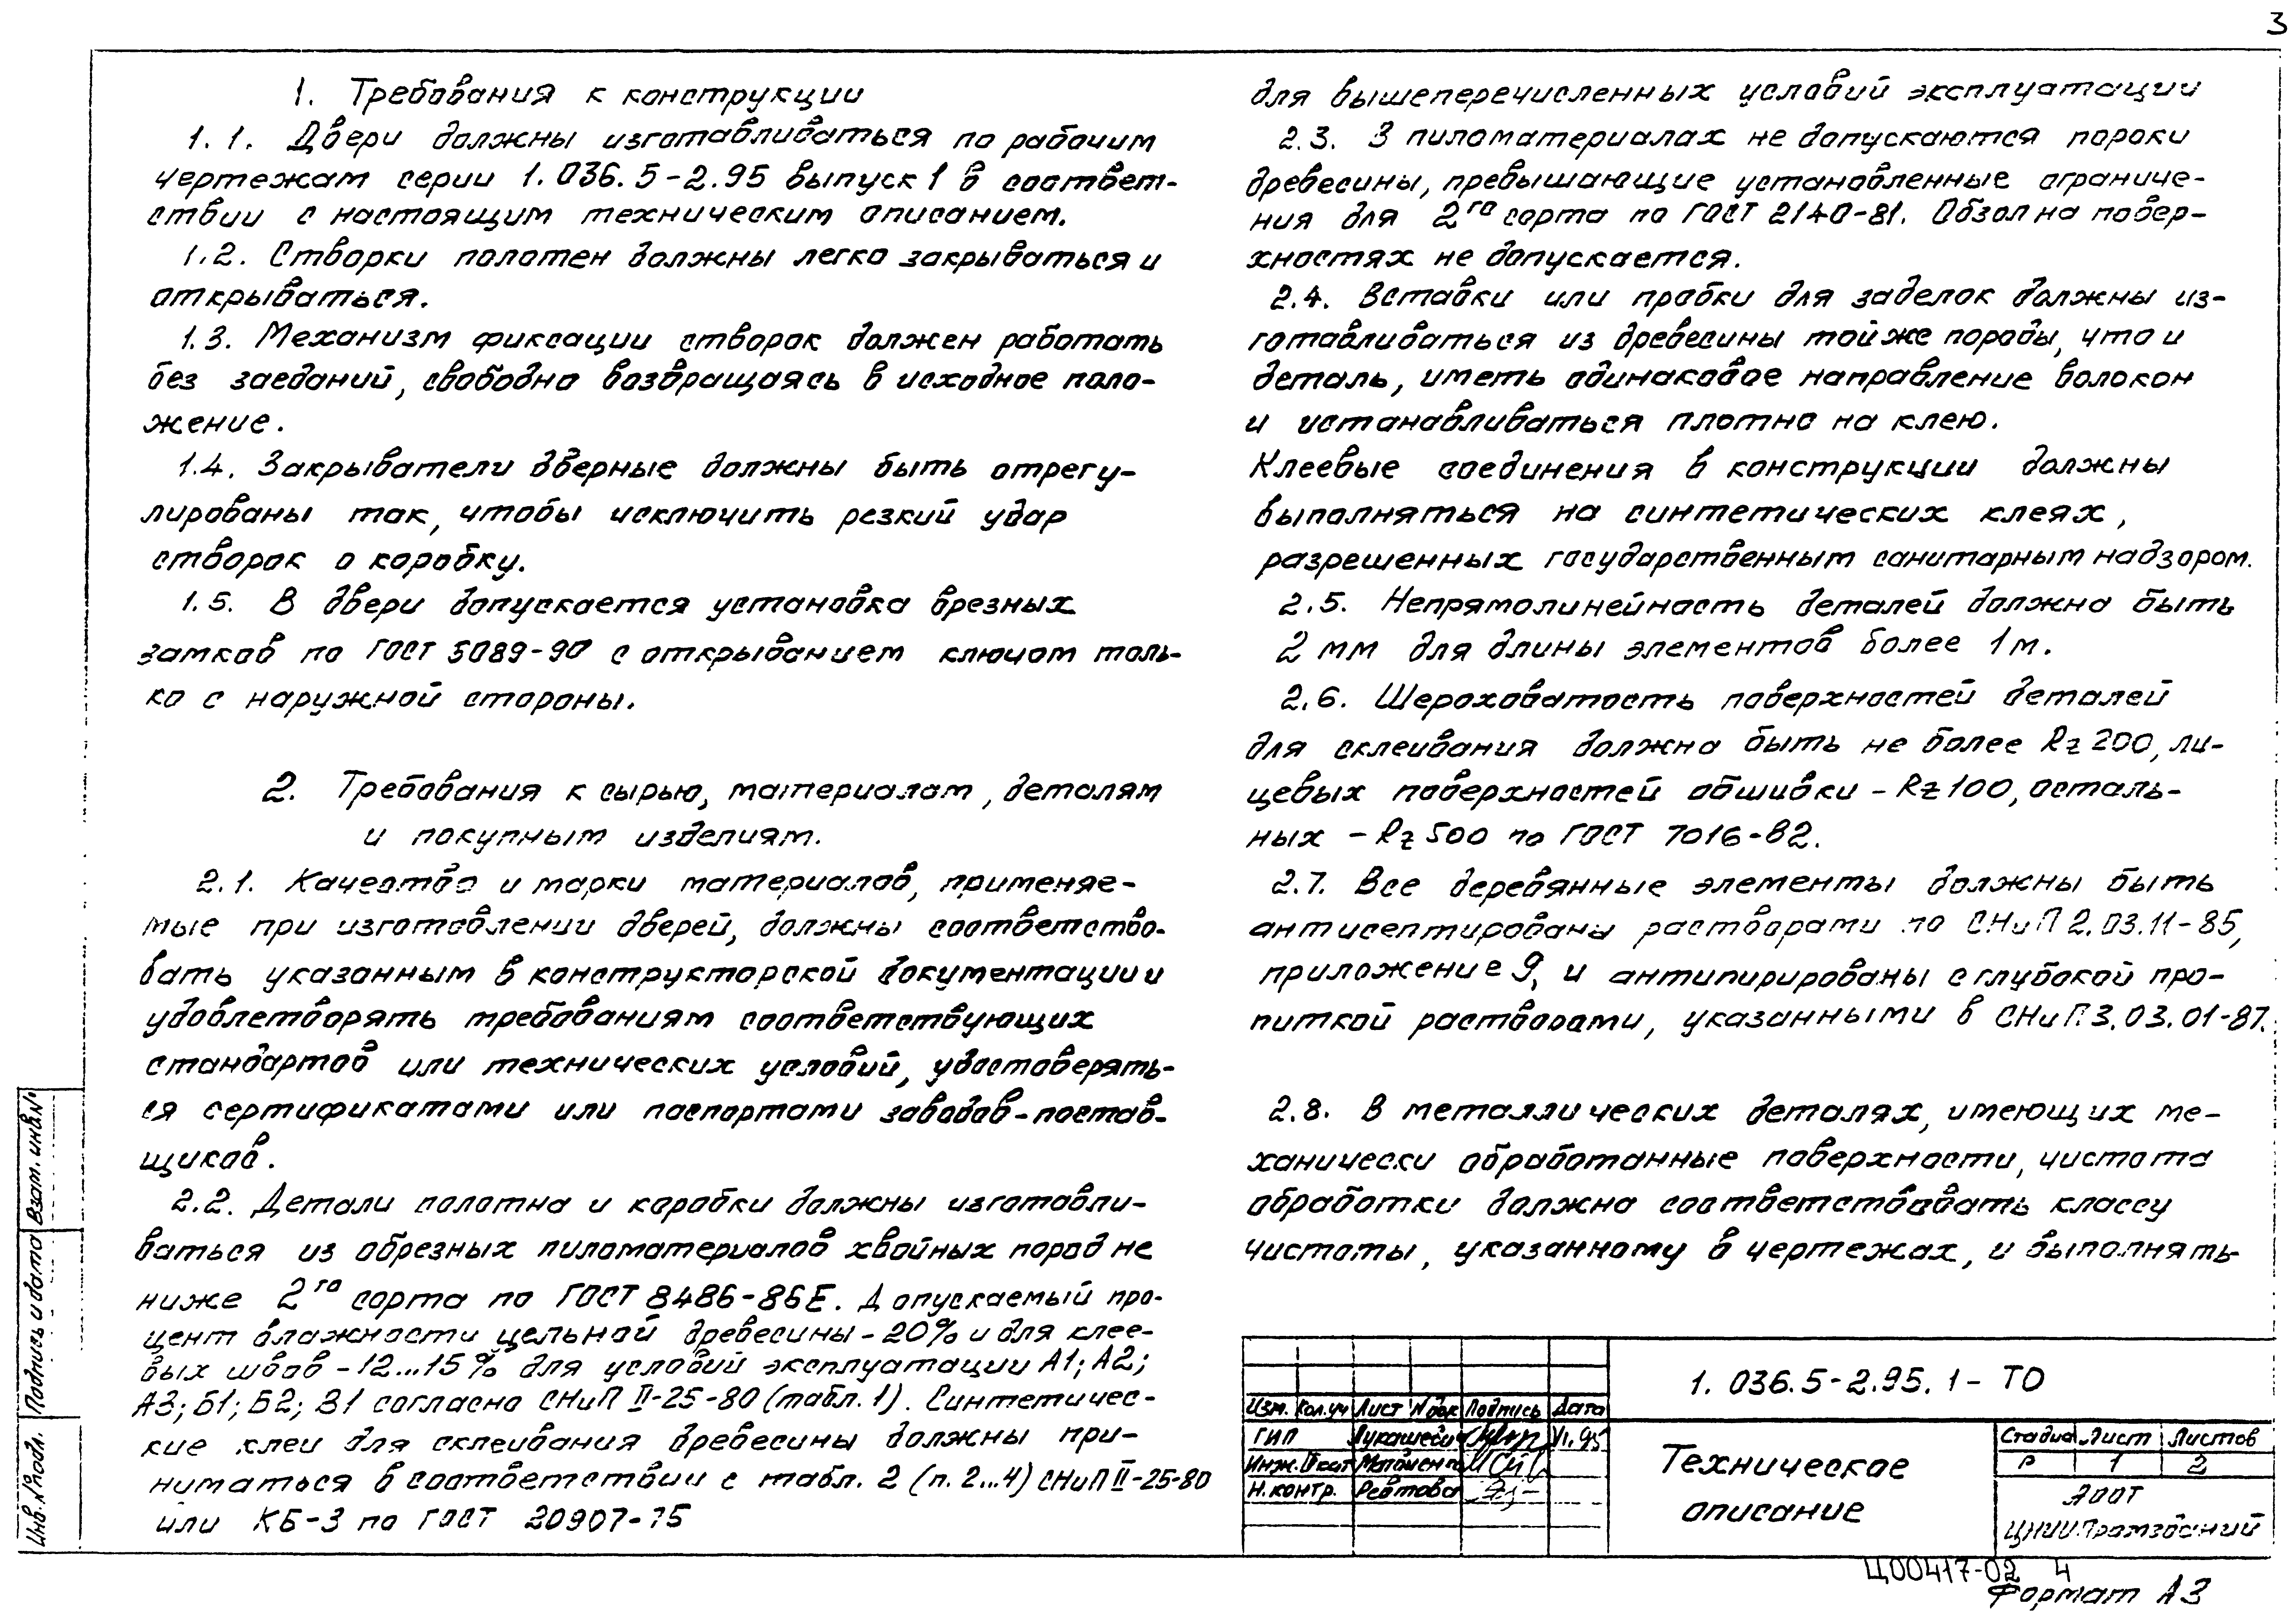 3
1. Требования к конструкции
1.1. Двери должны изготавливаться по рабочим
чертежам серии 1.036.5-2.95 выпуск 1 в соответ-
ствии с настоящим техническим описанием.
1.2. Створки полотен должны легко закрываться и
открываться.
1.3. Механизм фиксации створок должен работать
без заеданий, свободно возвращаясь в исходное поло-
жение.
1.4. Закрыватели дверные должны быть отрегу-
лированы так, чтобы исключить резкий удар
створок о коробку.
1.5. В двери допускается установка врезных
замков по ГОСТ 5089-90 с открыванием ключом толь-
ко с наружной стороны.
2. Требования к сырью, материалам, деталям
и покупным изделиям.
2.1. Качество и марки материалов, применяе-
мые при изготовлении дверей, должны соответство-
вать указанным в конструкторской документации и
удовлетворять требованиям соответствующих
стандартов или технических условий, удостоверять-
ся сертификатами или паспортами заводов-постав-
щиков.
2.2. Детали полотна и коробки должны изготавли-
ваться из обрезных пиломатериалов хвойных пород не
ниже 2го сорта по ГОСТ 8486-86Е. Допускаемый про-
цент влажности цельной древесины - 20% и для клее-
вых швов - 12...15% для условий эксплуатации А1; А2;
А3; Б1; Б2; В1 согласно СНиП II-25-80 (табл. 1). Синтетичес-
кие клеи для склеивания древесины должны при-
ниматься в соответствии с табл. 2 (п. 2...4) СНиП II-25-80
или КБ-3 по ГОСТ 20907-75
для вышеперечисленных условий эксплуатации
2.3. В пиломатериалах не допускаются пороки
древесины, превышающие установленные ограниче-
ния для 2го сорта по ГОСТ 2140-81. Обзол на повер-
хностях не допускается.
2.4. Вставки или пробки для заделок должны из-
готавливаться из древесины той же породы, что и
деталь, иметь одинаковое направление волокон
и устанавливаться плотно на клею.
Клеевые соединения в конструкции должны
выполняться на синтетических клеях,
разрешенных государственным санитарным надзором.
2.5. Непрямолинейность деталей должна быть
2 мм для длины элементов более 1 м.
2.6. Шероховатость поверхностей деталей
для склеивания должна быть не более Rz 200, ли-
цевых поверхностей обшивки - Rz 100, осталь-
ных - Rz 500 по ГОСТ 7016-82.
2.7. Все деревянные элементы должны быть
антисептированы растворами по СНиП 2.03.11-85,
приложение 9, и антипирированы с глубокой про-
питкой растворами, указанными в СНиП 3.03.01-87.
2.8. В металлических деталях, имеющих ме-
ханически обработанные поверхности, чистота
обработки должна соответствовать классу
чистоты, указанному в чертежах, и выполнять-
Взам. инв.№
Подпись и дата
Инв.№подл.
Изм. Кол.уч Лист №док Подпись Дата
ГИП VI.95
Инж.
Н.контр. Ревтова
1.036.5-2.95.1-ТО
Техническое
описание
Стадия Лист Листов
Р 1 2
АООТ
ЦНИИПромзданий
Ц00417-02 4
Формат А3